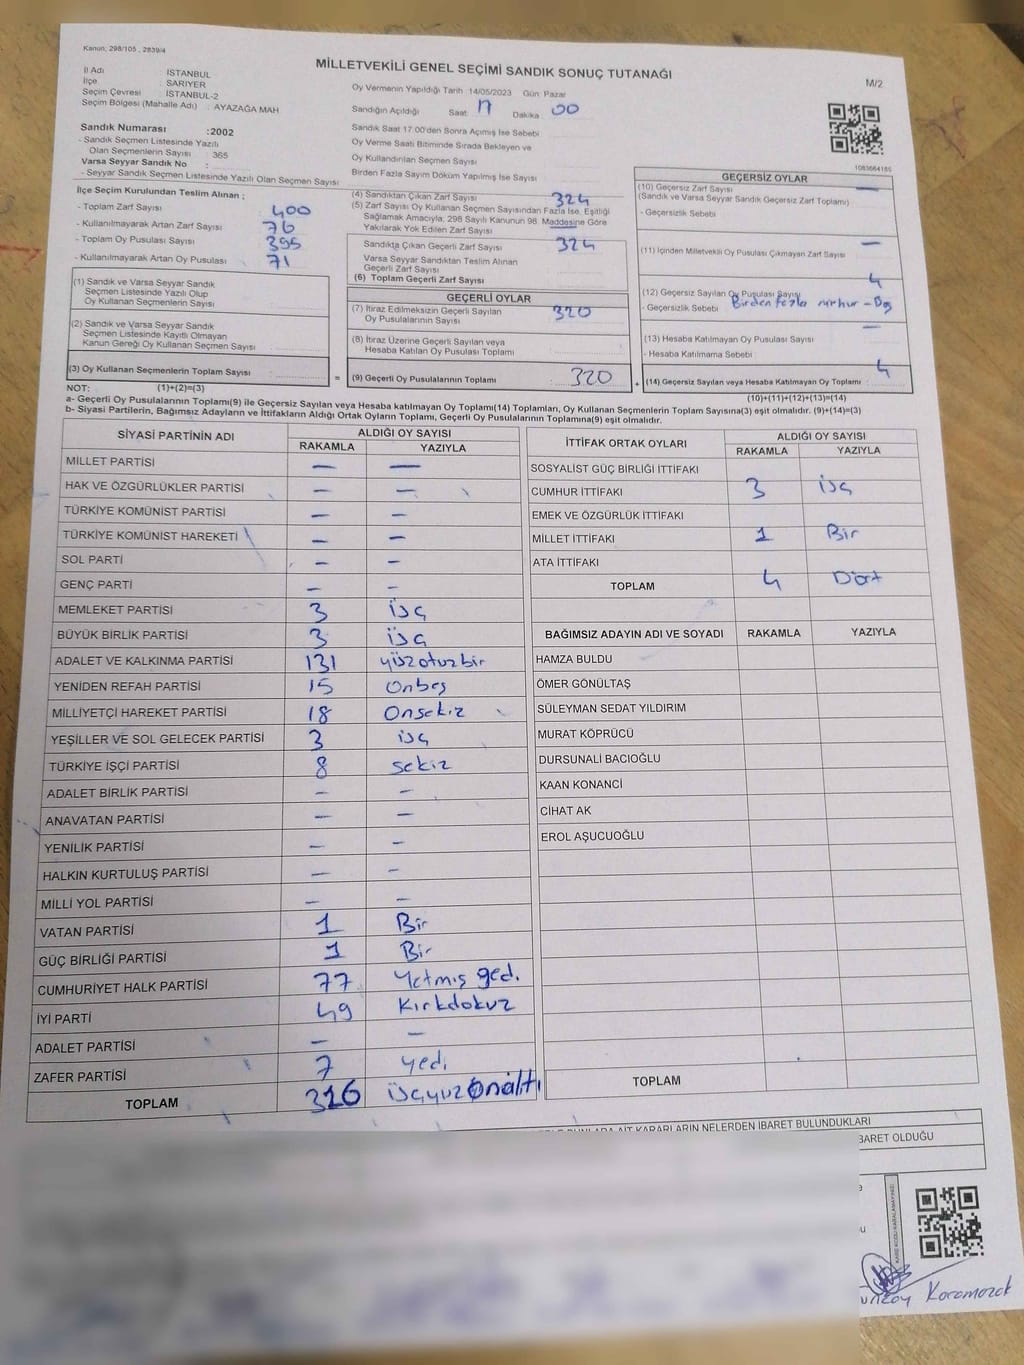 Kanun; 298/105 , 2839/4
MİLLETVEKİLİ GENEL SEÇİMİ SANDIK SONUÇ TUTANAĞI
M/2
İl Adı : İSTANBUL
İlçe : SARIYER
Seçim Çevresi : İSTANBUL-2
Seçim Bölgesi (Mahalle Adı) : AYAZAĞA MAH
Sandık Numarası :2002
- Sandık Seçmen Listesinde Yazılı
Olan Seçmenlerin Sayısı : 365
Varsa Seyyar Sandık No :
- Seyyar Sandık Seçmen Listesinde Yazılı Olan Seçmen Sayısı
Oy Vermenin Yapıldığı Tarih 14/05/2023 Gün: Pazar
Sandığın Açıldığı Saat 17 Dakika 00
Sandık Saat 17.00'den Sonra Açımış İse Sebebi
Oy Verme Saati Bitiminde Sırada Bekleyen ve
Oy Kullandırılan Seçmen Sayısı
Birden Fazla Sayım Döküm Yapılmış İse Sayısı
1083664185
İlçe Seçim Kurulundan Teslim Alınan ;
- Toplam Zarf Sayısı 400
- Kullanılmayarak Artan Zarf Sayısı 76
- Toplam Oy Pusulası Sayısı 395
- Kullanılmayarak Artan Oy Pusulası 71
(1) Sandık ve Varsa Seyyar Sandık
Seçmen Listesinde Yazılı Olup
Oy Kullanan Seçmenlerin Sayısı
(2) Sandık ve Varsa Seyyar Sandık
Seçmen Listesinde Kayıtlı Olmayan
Kanun Gereği Oy Kullanan Seçmen Sayısı
(3) Oy Kullanan Seçmenlerin Toplam Sayısı =
(4) Sandıktan Çıkan Zarf Sayısı 324
(5) Zarf Sayısı Oy Kullanan Seçmen Sayısından Fazla İse, Eşitliği
Sağlamak Amacıyla; 298 Sayılı Kanunun 98. Maddesine Göre
Yakılarak Yok Edilen Zarf Sayısı
Sandıkta Çıkan Geçerli Zarf Sayısı 324
Varsa Seyyar Sandıktan Teslim Alınan
Geçerli Zarf Sayısı
(6) Toplam Geçerli Zarf Sayısı
GEÇERLİ OYLAR
(7) İtiraz Edilmeksizin Geçerli Sayılan
Oy Pusulalarının Sayısı 320
(8) İtiraz Üzerine Geçerli Sayılan veya
Hesaba Katılan Oy Pusulası Toplamı
(9) Geçerli Oy Pusulalarının Toplamı 320 +
GEÇERSİZ OYLAR
(10) Geçersiz Zarf Sayısı —
(Sandık ve Varsa Seyyar Sandık Geçersiz Zarf Toplamı)
- Geçersizlik Sebebi
(11) İçinden Milletvekili Oy Pusulası Çıkmayan Zarf Sayısı —
(12) Geçersiz Sayılan Oy Pusulası Sayısı 4
- Geçersizlik Sebebi Birden fazla mühür - Boş
(13) Hesaba Katılmayan Oy Pusulası Sayısı —
- Hesaba Katılmama Sebebi
(14) Geçersiz Sayılan veya Hesaba Katılmayan Oy Toplamı 4
NOT: (1)+(2)=(3) (10)+(11)+(12)+(13)=(14)
a- Geçerli Oy Pusulalarının Toplamı(9) ile Geçersiz Sayılan veya Hesaba katılmayan Oy Toplamı(14) Toplamları, Oy Kullanan Seçmenlerin Toplam Sayısına(3) eşit olmalıdır. (9)+(14)=(3)
b- Siyasi Partilerin, Bağımsız Adayların ve İttifakların Aldığı Ortak Oyların Toplamı, Geçerli Oy Pusulalarının Toplamına(9) eşit olmalıdır.
SİYASİ PARTİNİN ADI ALDIĞI OY SAYISI
RAKAMLA YAZIYLA
MİLLET PARTİSİ — —
HAK VE ÖZGÜRLÜKLER PARTİSİ — —
TÜRKİYE KOMÜNİST PARTİSİ — —
TÜRKİYE KOMÜNİST HAREKETİ — —
SOL PARTİ — —
GENÇ PARTİ — —
MEMLEKET PARTİSİ 3 üç
BÜYÜK BİRLİK PARTİSİ 3 üç
ADALET VE KALKINMA PARTİSİ 131 yüzotuzbir
YENİDEN REFAH PARTİSİ 15 Onbeş
MİLLİYETÇİ HAREKET PARTİSİ 18 Onsekiz
YEŞİLLER VE SOL GELECEK PARTİSİ 3 üç
TÜRKİYE İŞÇİ PARTİSİ 8 sekiz
ADALET BİRLİK PARTİSİ — —
ANAVATAN PARTİSİ — —
YENİLİK PARTİSİ — —
HALKIN KURTULUŞ PARTİSİ — —
MİLLİ YOL PARTİSİ — —
VATAN PARTİSİ 1 Bir
GÜÇ BİRLİĞİ PARTİSİ 1 Bir
CUMHURİYET HALK PARTİSİ 77 Yetmiş yedi
İYİ PARTİ 49 Kırkdokuz
ADALET PARTİSİ — —
ZAFER PARTİSİ 7 yedi
TOPLAM 316 üçyüzonaltı
İTTİFAK ORTAK OYLARI ALDIĞI OY SAYISI
RAKAMLA YAZIYLA
SOSYALİST GÜÇ BİRLİĞİ İTTİFAKI
CUMHUR İTTİFAKI 3 üç
EMEK VE ÖZGÜRLÜK İTTİFAKI
MİLLET İTTİFAKI 1 Bir
ATA İTTİFAKI
TOPLAM 4 Dört
BAĞIMSIZ ADAYIN ADI VE SOYADI RAKAMLA YAZIYLA
HAMZA BULDU
ÖMER GÖNÜLTAŞ
SÜLEYMAN SEDAT YILDIRIM
MURAT KÖPRÜCÜ
DURSUNALİ BACIOĞLU
KAAN KONANCİ
CİHAT AK
EROL AŞUCUOĞLU
TOPLAM
BUNLARA AİT KARARLARIN NELERDEN İBARET BULUNDUKLARI
BARET OLDUĞU